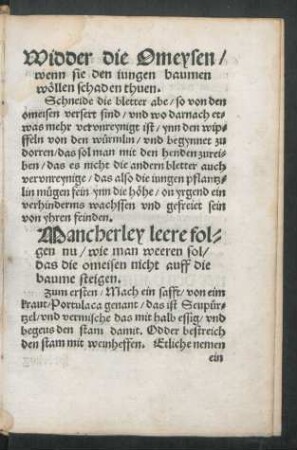 Widder die Omeysen /
wenn sie den iungen baumen
wöllen schaden thuen.
Schneide die bletter abe / so von den
omeisen versert sind / vnd wo darnach et-
was mehr vervnreynigt ist / ynn den wipf-
feln von den würmlin / vnd begynnet zu
dorren / das sol man mit den henden zurei-
ben / das es nicht die andern bletter auch
vervnreynige / das also die iungen pflantz-
lin mügen sein ynn die höhe / on yrgend ein
verhinderns wachssen vnd gefreiet sein
von yhren feinden.
Mancherley leere fol-
gen nu / wie man weeren sol /
das die omeisen nicht auff die
baume steigen.
Zum ersten / Mach ein safft / von eim
kraut / Portulaca genant / das ist
tzel / vnd vermische das mit halb essig / vnd
begeus den stam damit. Odder bestreich
den stam mit weinheffen. Etliche nemen
ein